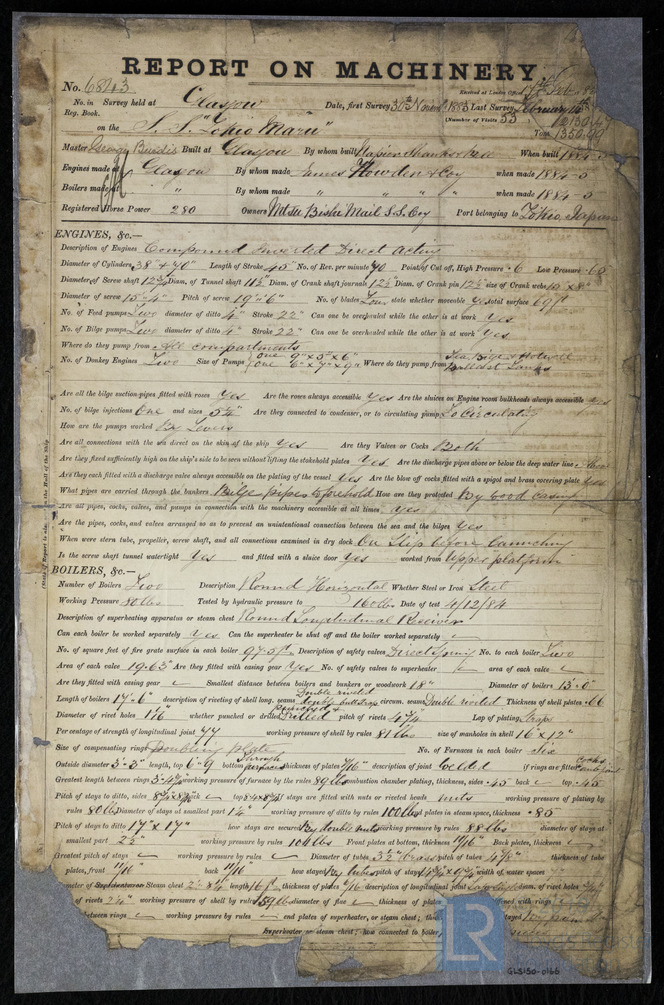 REPORT ON MACHINERY.
No. 6843
Received at London Office
No. in Survey held at Glasgow Date, first Survey Last Survey February
Reg. Book. (Number of Visits 53)
on the S. S. "Tokio Maru" Tons
Master George Built at Glasgow By whom built Napier Shanks & Bell When built 1884-5
Engines made at Glasgow By whom made James Howden & Coy when made 1884-5
Boilers made at " " By whom made " " " " when made 1884-5
Registered Horse Power 280 Owners Mail S.S. Coy Port belonging to Tokio Japan
ENGINES, &c.—
Description of Engines Compound Inverted Direct Acting
Diameter of Cylinders 38" + 70" Length of Stroke 45" No. of Rev. per minute 70 Point of Cut off, High Pressure .6 Low Pressure .60
Diameter of Screw shaft 12¾ Diam. of Tunnel shaft 11½ Diam. of Crank shaft journals 12½ Diam. of Crank pin 12½ size of Crank webs
Diameter of screw 15"-4" Pitch of screw 19"-6" No. of blades Four state whether moveable Yes total surface 69 ft
No. of Feed pumps Two diameter of ditto 4" Stroke 22" Can one be overhauled while the other is at work Yes
No. of Bilge pumps Two diameter of ditto 4" Stroke 22" Can one be overhauled while the other is at work Yes
Where do they pump from All compartments
No. of Donkey Engines Two Size of Pumps { one 9" x 5" x 6" Where do they pump from Sea Bilge & Hotwell
one 6" x 7" x 9" Ballast Tanks
Are all the bilge suction pipes fitted with roses Yes Are the roses always accessible Yes Are the sluices on Engine room bulkheads always accessible Yes
No. of bilge injections One and sizes 5¼" Are they connected to condenser, or to circulating pump To Circulating
How are the pumps worked By Levers
Are all connections with the sea direct on the skin of the ship Yes Are they Valves or Cocks Both
Are they fixed sufficiently high on the ship's side to be seen without lifting the stokehold plates Yes Are the discharge pipes above or below the deep water line
Are they each fitted with a discharge valve always accessible on the plating of the vessel Yes Are the blow off cocks fitted with a spigot and brass covering plate Yes
What pipes are carried through the bunkers Bilge pipes to forehold How are they protected By wood casing
Are all pipes, cocks, valves, and pumps in connection with the machinery accessible at all times Yes
Are the pipes, cocks, and valves arranged so as to prevent an unintentional connection between the sea and the bilges Yes
When were stern tube, propeller, screw shaft, and all connections examined in dry dock On Slip before launching
Is the screw shaft tunnel watertight Yes and fitted with a sluice door Yes worked from Upper platform
BOILERS, &c.—
Number of Boilers Two Description Round Horizontal Whether Steel or Iron Steel
Working Pressure 80 lbs Tested by hydraulic pressure to 160 lbs Date of test 4/12/84
Description of superheating apparatus or steam chest Round Longitudinal Receiver
Can each boiler be worked separately Yes Can the superheater be shut off and the boiler worked separately
No. of square feet of fire grate surface in each boiler Description of safety valves Direct Spring No. to each boiler Two
Area of each valve 19.63 Are they fitted with easing gear Yes No. of safety valves to superheater area of each valve
Are they fitted with easing gear Smallest distance between boilers and bunkers or woodwork 18" Diameter of boilers 13'-0"
Length of boilers 17'-6" description of riveting of shell long. seams Double riveted double buttstrap circum. seams Double riveted Thickness of shell plates .66
Diameter of rivet holes 1 1/16 whether punched or drilled Drilled pitch of rivets 4¾ Lap of plating Straps
Per centage of strength of longitudinal joint 77 working pressure of shell by rules 81 lbs size of manholes in shell 16" x 12"
Size of compensating rings Doubling plate No. of Furnaces in each boiler Six
Outside diameter 3'-3" length, top 6'-9 bottom thickness of plates description of joint Welded if rings are fitted
Greatest length between rings working pressure of furnace by the rules 89 lbs combustion chamber plating, thickness, sides .45 back top .45
Pitch of stays to ditto, sides back top If stays are fitted with nuts or riveted heads nuts working pressure of plating by
rules 80 lbs Diameter of stays at smallest part 1¼" working pressure of ditto by rules 100 lbs end plates in steam space, thickness .85
Pitch of stays to ditto 17" x 17" how stays are secured By double nuts working pressure by rules 88 lbs diameter of stays at
smallest part 2½" working pressure by rules 104 lbs Front plates at bottom, thickness 11/16" Back plates, thickness
Greatest pitch of stays working pressure by rules Diameter of tubes 3½" pitch of tubes 4⅞" thickness of tube
plates, front 11/16" back 11/16 how stayed By tubes pitch of stays width of water spaces
Diameter of Superheater or Steam chest length 16 ft thickness of plates description of longitudinal joint diam. of rivet holes
of rivets working pressure of shell by rules 159 lbs diameter of flue thickness of plates with rings
between rings working pressure by rules end plates of superheater, or steam chest;
Superheater or steam chest; how connected to boiler
LR
GLS150-0166